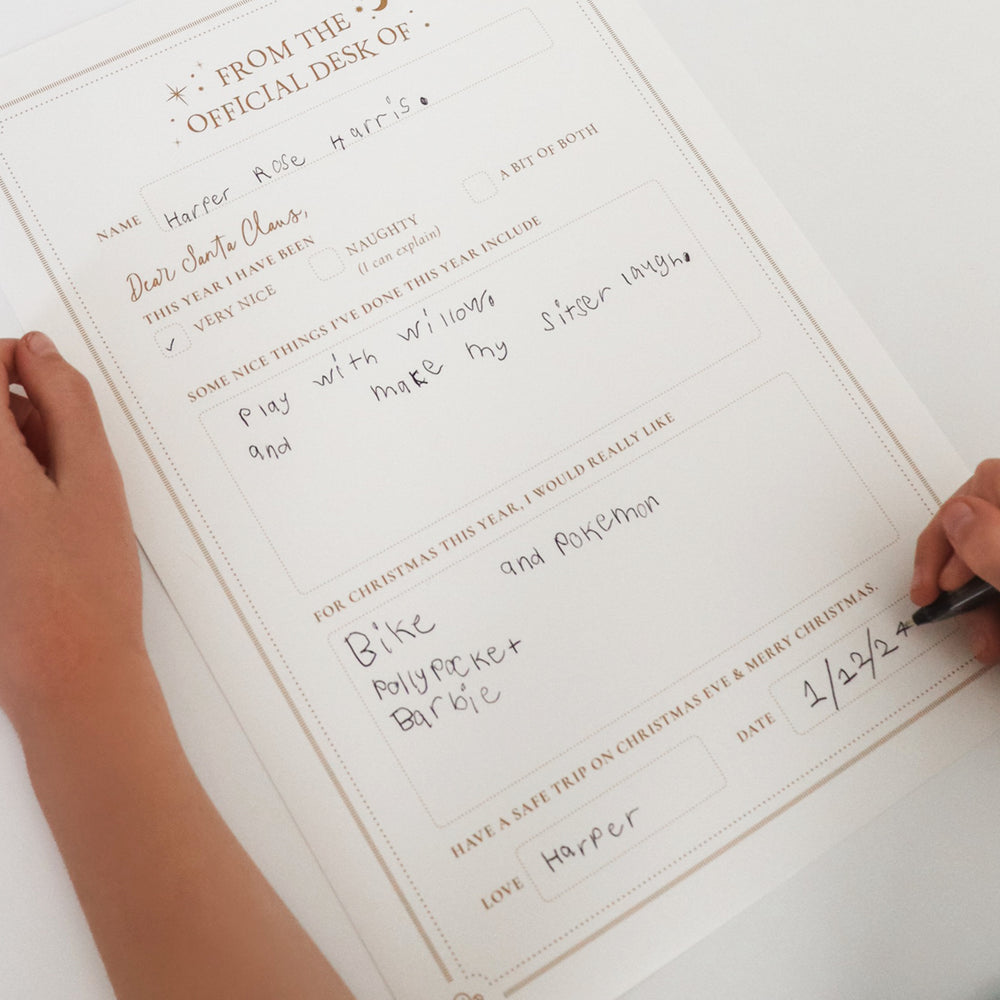 FROM THE
OFFICIAL DESK OF
NAME Harper Rose Harris.
Dear Santa Claus,
THIS YEAR I HAVE BEEN
✓ VERY NICE
NAUGHTY
(I can explain)
A BIT OF BOTH
SOME NICE THINGS I'VE DONE THIS YEAR INCLUDE
Play with willow.
and make my sitser laugh.
FOR CHRISTMAS THIS YEAR, I WOULD REALLY LIKE
Bike and Pokemon
Pollypocket
Barbie
HAVE A SAFE TRIP ON CHRISTMAS EVE & MERRY CHRISTMAS.
LOVE Harper
DATE 1/12/24